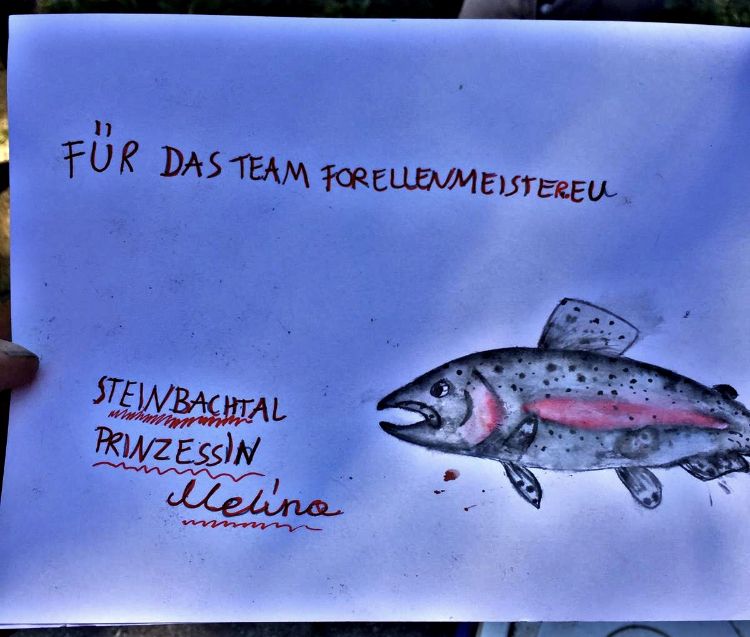 FÜR DAS TEAM FORELLENMEISTER.EU
STEINBACHTAL
PRINZESSIN
Melina